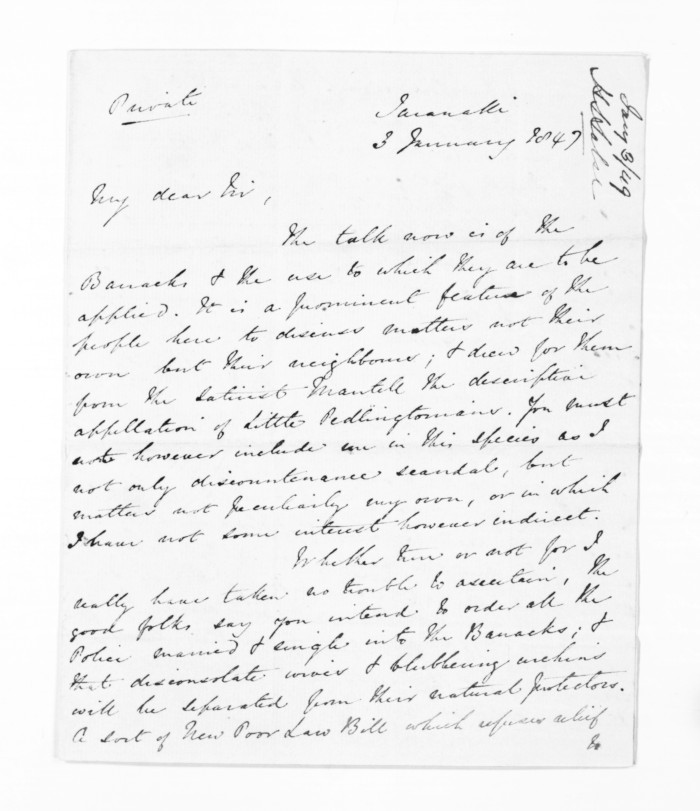 Private
Taranaki
3 January 1847
Jany 3/49
My dear Sir,
The talk now is of the
Barracks & the use to which they are to be
applied. It is a prominent feature of the
people here to discuss matters not their
own but their neighbours; & drew for them
from the Satirist Mantell the descriptive
appellation of Little Pedlingtonians. You must
not however include me in this species as I
not only discountenance scandal, but
matters not peculiarly my own, or in which
I have not some interest however indirect.
Whether true or not for I
really have taken no trouble to ascertain, the
good folks say you intend to order all the
Police married & single into the Barracks; &
that disconsolate wives & blubbering urchins
will be separated from their natural protectors.
A sort of New Poor Law Bill which refuses relief
to